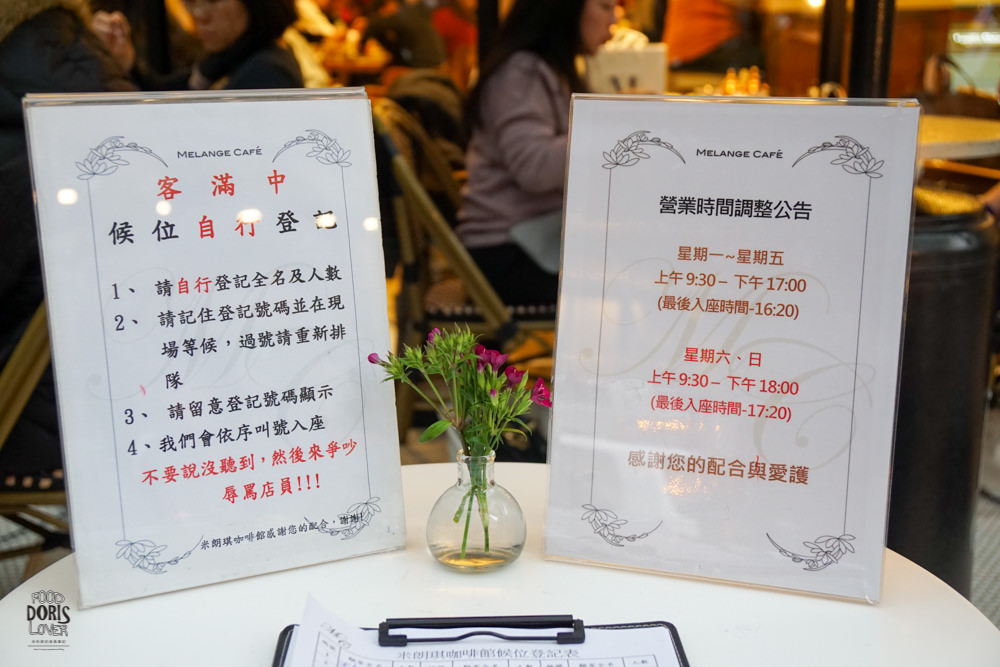 MELANGE CAFÉ
客滿中
候位自行登記
1、 請自行登記全名及人數
2、 請記住登記號碼並在現
場等候，過號請重新排
隊
3、 請留意登記號碼顯示
4、我們會依序叫號入座
不要說沒聽到，然後來爭吵
辱罵店員!!!
米朗琪咖啡館感謝您的配合，謝謝!
MELANGE CAFÉ
營業時間調整公告
星期一~星期五
上午 9:30 – 下午 17:00
(最後入座時間-16:20)
星期六、日
上午 9:30 – 下午 18:00
(最後入座時間-17:20)
感謝您的配合與愛護
米朗琪咖啡館候位登記表
FOOD
DORIS
LOVER